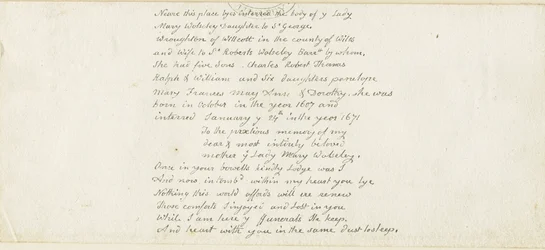 Neare this place lyes interred the body of y Lady
Mary Wolseley Daughter to Sr George
Wroughton of in the county of Wilts
and Wife to Sr Roberte Wolseley Barrt by whom
She had five Sons Charles Robert Thomas
Ralph & William and Six daughters penelope
Mary Frances Mary & Dorothy. She was
born in October in the year 1607 and
interred January y 24th in the year 1671
To the precious memory of my
dear & most intirely beloved
mother ye Lady Mary Wolseley.
Once in your bowells kindly Lodge was I
And now intomb'd within my heart you lye
Nothing this world affords will ere renew
Those comforts I injoyed and Lost in you
While I am here y funerals Ile keep.
And heart with you in the same dust to sleep.